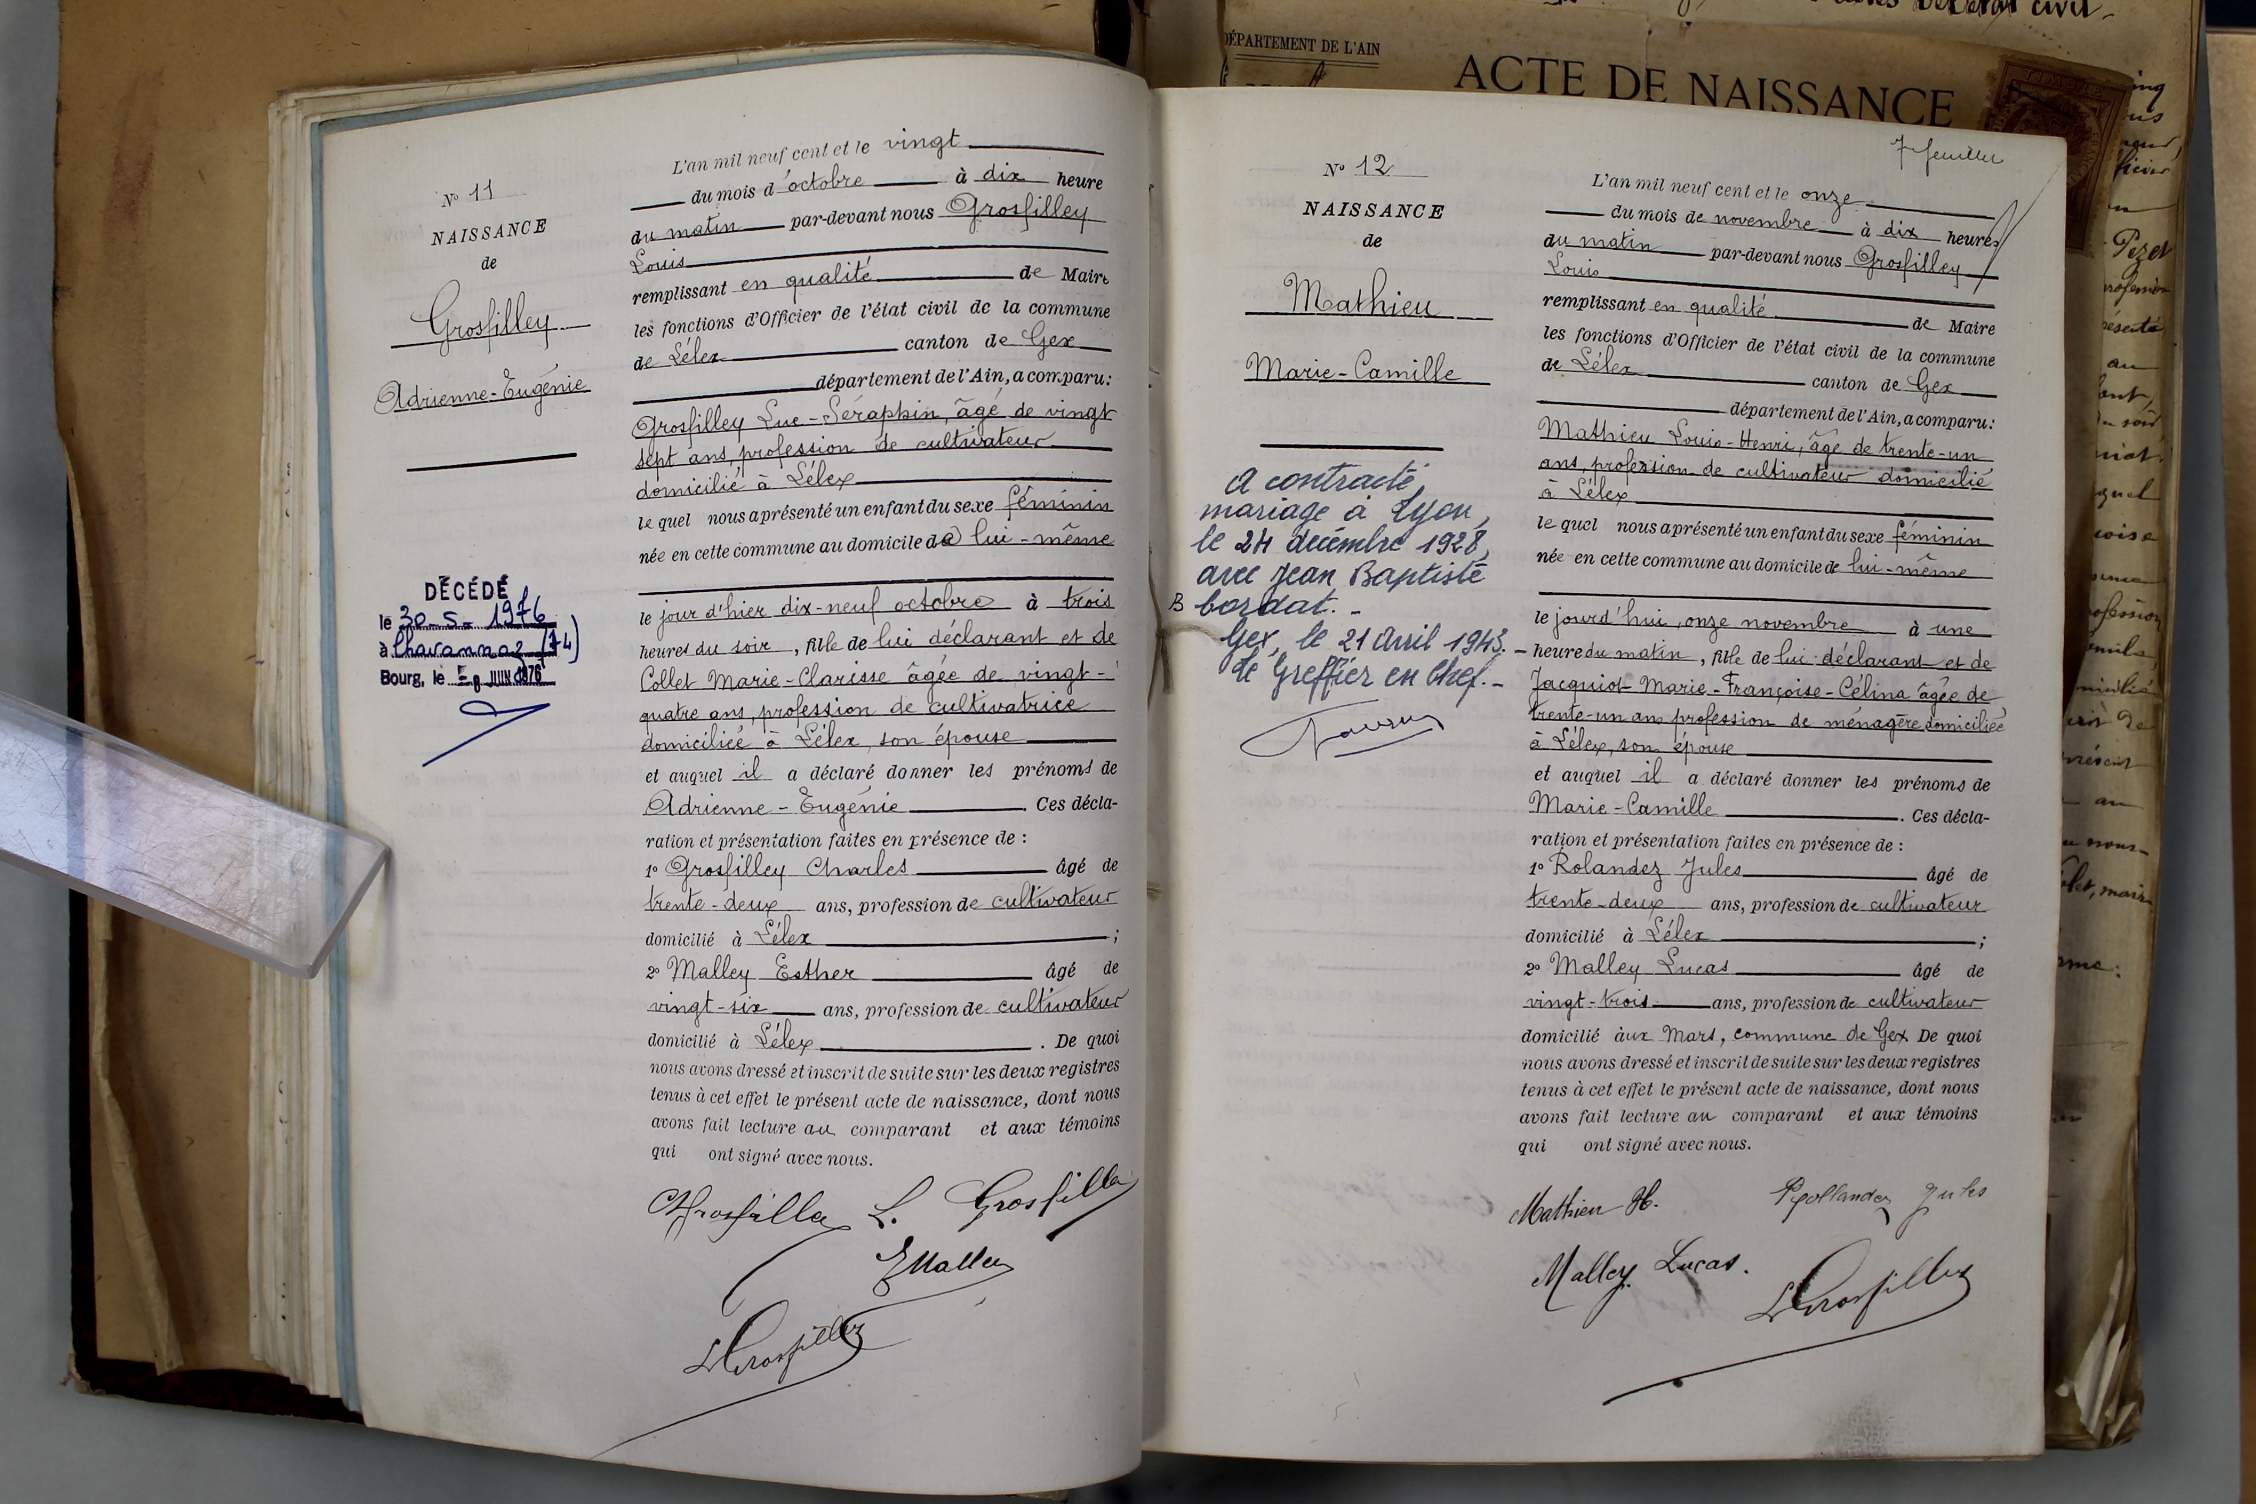 N° 11
NAISSANCE
de
Grosfilley
Adrienne-Eugénie
DÉCÉDÉ
le 30-5-1976
à Chavannaz (74)
Bourg, le -8 JUIN 1976
L'an mil neuf cent et le vingt
du mois d'octobre à dix heure
du matin par-devant nous Grosfilley
Louis
remplissant en qualité de Maire
les fonctions d'Officier de l'état civil de la commune
de Lélex canton de Gex
département de l'Ain, a comparu:
Grosfilley Luc-Séraphin, âgé de vingt
sept ans, profession de cultivateur
domicilié à Lélex
le quel nous a présenté un enfant du sexe féminin
née en cette commune au domicile de lui-même
le jour d'hier dix-neuf octobre à trois
heures du soir, fille de lui déclarant et de
Collet Marie-Clarisse âgée de vingt-
quatre ans, profession de cultivatrice
domiciliée à Lélex, son épouse
et auquel il a déclaré donner les prénoms de
Adrienne-Eugénie. Ces décla-
ration et présentation faites en présence de :
1° Grosfilley Charles âgé de
trente-deux ans, profession de cultivateur
domicilié à Lélex ;
2° Malley Esther âgé de
vingt-six ans, profession de cultivateur
domicilié à Lélex. De quoi
nous avons dressé et inscrit de suite sur les deux registres
tenus à cet effet le présent acte de naissance, dont nous
avons fait lecture au comparant et aux témoins
qui ont signé avec nous.
L. Grosfilley
E Malley
L Grosfilley
DÉPARTEMENT DE L'AIN
ACTE DE NAISSANCE
7e feuillet
N° 12
NAISSANCE
de
Mathieu
Marie-Camille
A contracté
mariage à Lyon,
le 24 décembre 1928,
avec Jean Baptiste
B bordat.-
Gex, le 21 Avril 1943.-
Le Greffier en Chef.-
L'an mil neuf cent et le onze
du mois de novembre à dix heures
du matin par-devant nous Grosfilley
Louis
remplissant en qualité de Maire
les fonctions d'Officier de l'état civil de la commune
de Lélex canton de Gex
département de l'Ain, a comparu:
Mathieu Louis-Henri, âgé de trente-un
ans, profession de cultivateur domicilié
à Lélex
le quel nous a présenté un enfant du sexe féminin
née en cette commune au domicile de lui-même
le jourd'hui, onze novembre à une
heure du matin, fille de lui déclarant et de
Jacquiot Marie-Françoise-Célina âgée de
trente-un ans profession de ménagère domiciliée
à Lélex, son épouse
et auquel il a déclaré donner les prénoms de
Marie-Camille. Ces décla-
ration et présentation faites en présence de :
1° Rolandez Jules âgé de
trente-deux ans, profession de cultivateur
domicilié à Lélex ;
2° Malley Lucas âgé de
vingt-trois ans, profession de cultivateur
domicilié àux Mars, commune de Gex De quoi
nous avons dressé et inscrit de suite sur les deux registres
tenus à cet effet le présent acte de naissance, dont nous
avons fait lecture au comparant et aux témoins
qui ont signé avec nous.
Mathieu H. Rollandez Jules
Malley Lucas.
L Grosfilley